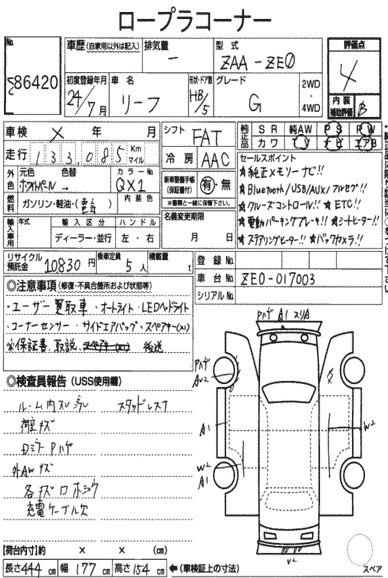 ロープラコーナー
No.
86420
車歴 (自家用以外は記入)
排気量
型式
ー
ZAA-ZE0
評価点
4
初度登録年月
24年7月
車名
リーフ
形状・ドア数
HB/5
グレード
G
2WD
・
4WD
内装
補助評価
B
車検 × 年 月
走行 133,085 Km マイル
シフト
FAT
冷房
AAC
純正品
SR 純AW PS PW
カワ ナビ エアB
外色
元色
色替
カラーNo.
QX1
ホワイトパール→
内装色
燃料
ガソリン・軽油・(電気)
車輌整備手帳
(保証書付)
有・無
セールスポイント
★純正メモリーナビ!!
★Bluetooth/USB/AUX/フルセグ!!
★クルーズコントロール!! ★ETC!!
★電動パーキングブレーキ!! ★シートヒーター!!
★ステアリングヒーター!! ★バックカメラ!!
輸入車用
年式
輸入区分
ハンドル
ディーラー・並行
左・右
名義変更期限
月 日
リサイクル預託金
10830円
乗車定員
5人
積載量
登録No.
車台No.
ZE0-017003
シリアルNo.
◎注意事項 (修復・不具合箇所および状態等)
・ユーザー買取車・オートライト・LEDヘッドライト
・コーナーセンサー・サイドエアバッグ・スペアキー(×1)
※保証書、取説、後送
◎検査員報告 (USS使用欄)
ルーム内スレ、汚レ
スタッドレス
補修キズ
外AWキズ
充電ケーブル欠
A1
W2
W2
A1
V2
【荷台内寸】約 × × (cm)
長さ 444 cm 幅 177 cm 高さ 154 cm ←(車検証上の寸法)
スペア